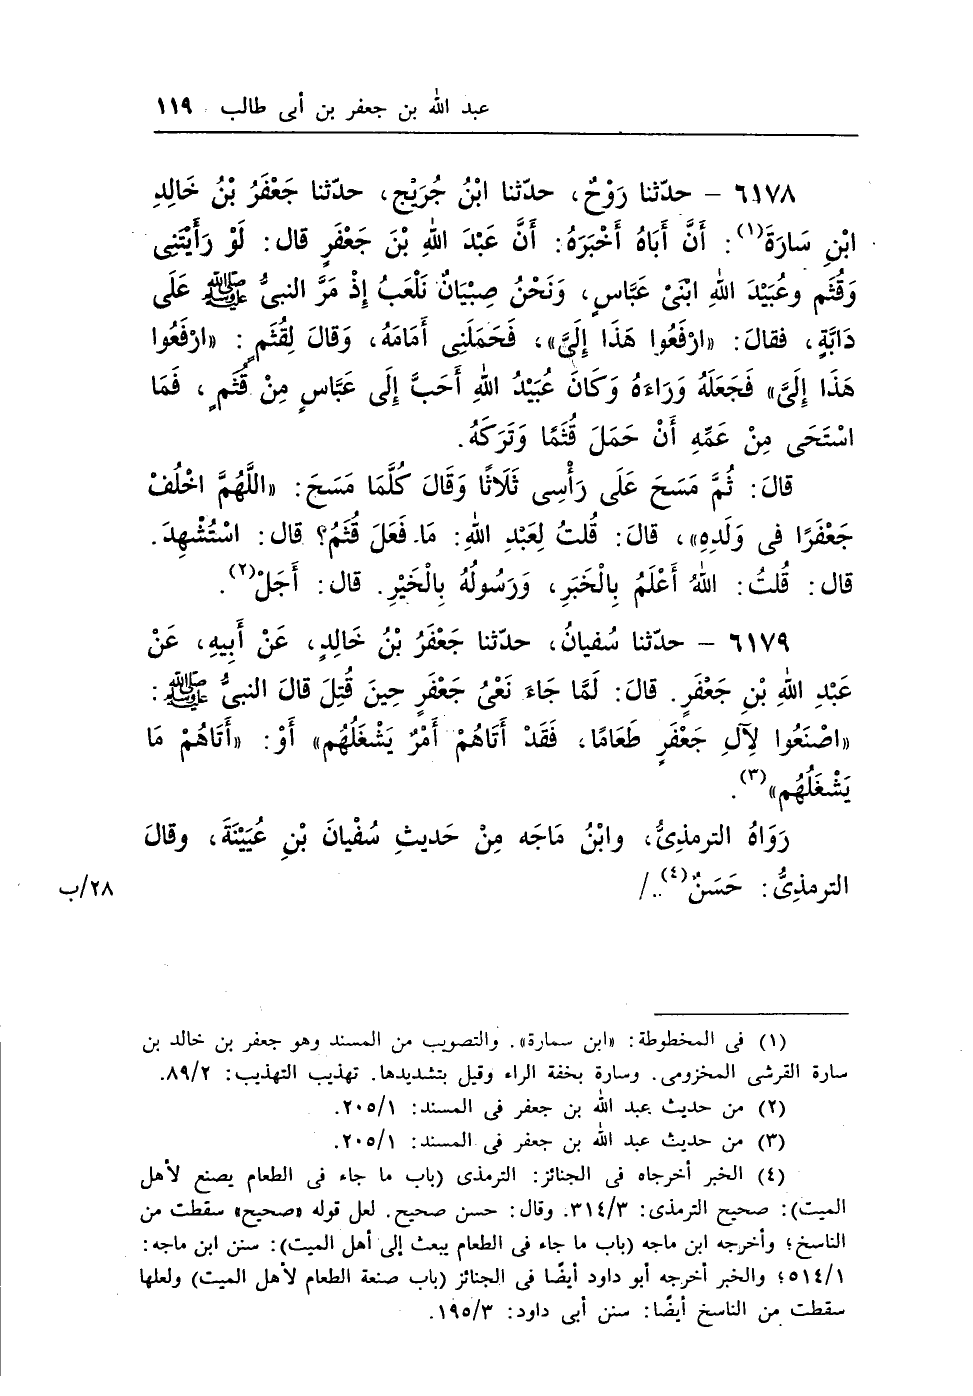 عبد الله بن جعفر بن أبى طالب ١١٩
٦١٧٨ – حدّثنا رَوْحٌ، حدّثنا ابْنُ جُرَيْجٍ، حدّثنا جَعْفَرُ بْنُ خَالِدِ
ابْنِ سَارَةَ(١): أَنَّ أَبَاهُ أَخْبَرَهُ: أَنَّ عَبْدَ اللهِ بْنَ جَعْفَرٍ قال: لَوْ رَأَيْتَنِى
وَقُثَم وعُبَيْدَ اللهِ ابْنَىْ عَبَّاسٍ، وَنَحْنُ صِبْيَانٌ نَلْعَبُ إِذْ مَرَّ النبىُّ ﷺ عَلَى
دَابَّةٍ، فقالَ: «ارْفَعُوا هَذَا إِلَىَّ»، فَحَمَلَنِى أَمَامَهُ، وَقالَ لِقُثَمٍ: «ارْفَعُوا
هَذَا إِلَىَّ» فَجَعَلَهُ وَرَاءَهُ وَكَانَ عُبَيْدُ اللهِ أَحَبَّ إِلَى عَبَّاسٍ مِنْ قُثَمٍ، فَمَا
اسْتَحَى مِنْ عَمِّهِ أَنْ حَمَلَ قُثَمًا وَتَرَكَهُ.
قالَ: ثُمَّ مَسَحَ عَلَى رَأْسِى ثَلَاثًا وَقَالَ كُلَّمَا مَسَحَ: «اللَّهُمَّ اخْلُفْ
جَعْفَرًا فى وَلَدِهِ»، قالَ: قُلتُ لِعَبْدِ اللهِ: مَا فَعَلَ قُثَمُ؟ قال: اسْتُشْهِدَ.
قال: قُلتُ: اللهُ أَعْلَمُ بِالْخَبَرِ، وَرَسُولُهُ بِالْخَيْرِ. قال: أَجَلْ(٢).
٦١٧٩ – حدّثنا سُفيانُ، حدّثنا جَعْفَرُ بْنُ خَالِدٍ، عَنْ أَبِيهِ، عَنْ
عَبْدِ اللهِ بْنِ جَعْفَرٍ. قالَ: لَمَّا جَاءَ نَعْىُ جَعْفَرٍ حِينَ قُتِلَ قالَ النبىُّ ﷺ:
«اصْنَعُوا لِآلِ جَعْفَرٍ طَعَامًا، فَقَدْ أَتَاهُمْ أَمْرٌ يَشْغَلُهُم» أَوْ: «أَتَاهُمْ مَا
يَشْغَلُهُم»(٣).
رَوَاهُ الترمذىُّ، وابْنُ مَاجَه مِنْ حَديثِ سُفْيانَ بْنِ عُيَيْنَةَ، وقالَ
الترمذِىُّ: حَسَنٌ(٤)../
٢٨/ب
(١) فى المخطوطة: «ابن سمارة». والتصويب من المسند وهو جعفر بن خالد بن
سارة القرشى المخزومى. وسارة بخفة الراء وقيل بتشديدها. تهذيب التهذيب: ٨٩/٢.
(٢) من حديث عبد الله بن جعفر فى المسند: ٢٠٥/١.
(٣) من حديث عبد الله بن جعفر فى المسند: ٢٠٥/١.
(٤) الخبر أخرجاه فى الجنائز: الترمذى (باب ما جاء فى الطعام يصنع لأهل
الميت): صحيح الترمذى: ٣١٤/٣. وقال: حسن صحيح. لعل قوله «صحيح» سقطت من
الناسخ؛ وأخرجه ابن ماجه (باب ما جاء فى الطعام يبعث إلى أهل الميت): سنن ابن ماجه:
٥١٤/١؛ والخبر أخرجه أبو داود أيضًا فى الجنائز (باب صنعة الطعام لأهل الميت) ولعلها
سقطت من الناسخ أيضًا: سنن أبى داود: ١٩٥/٣.